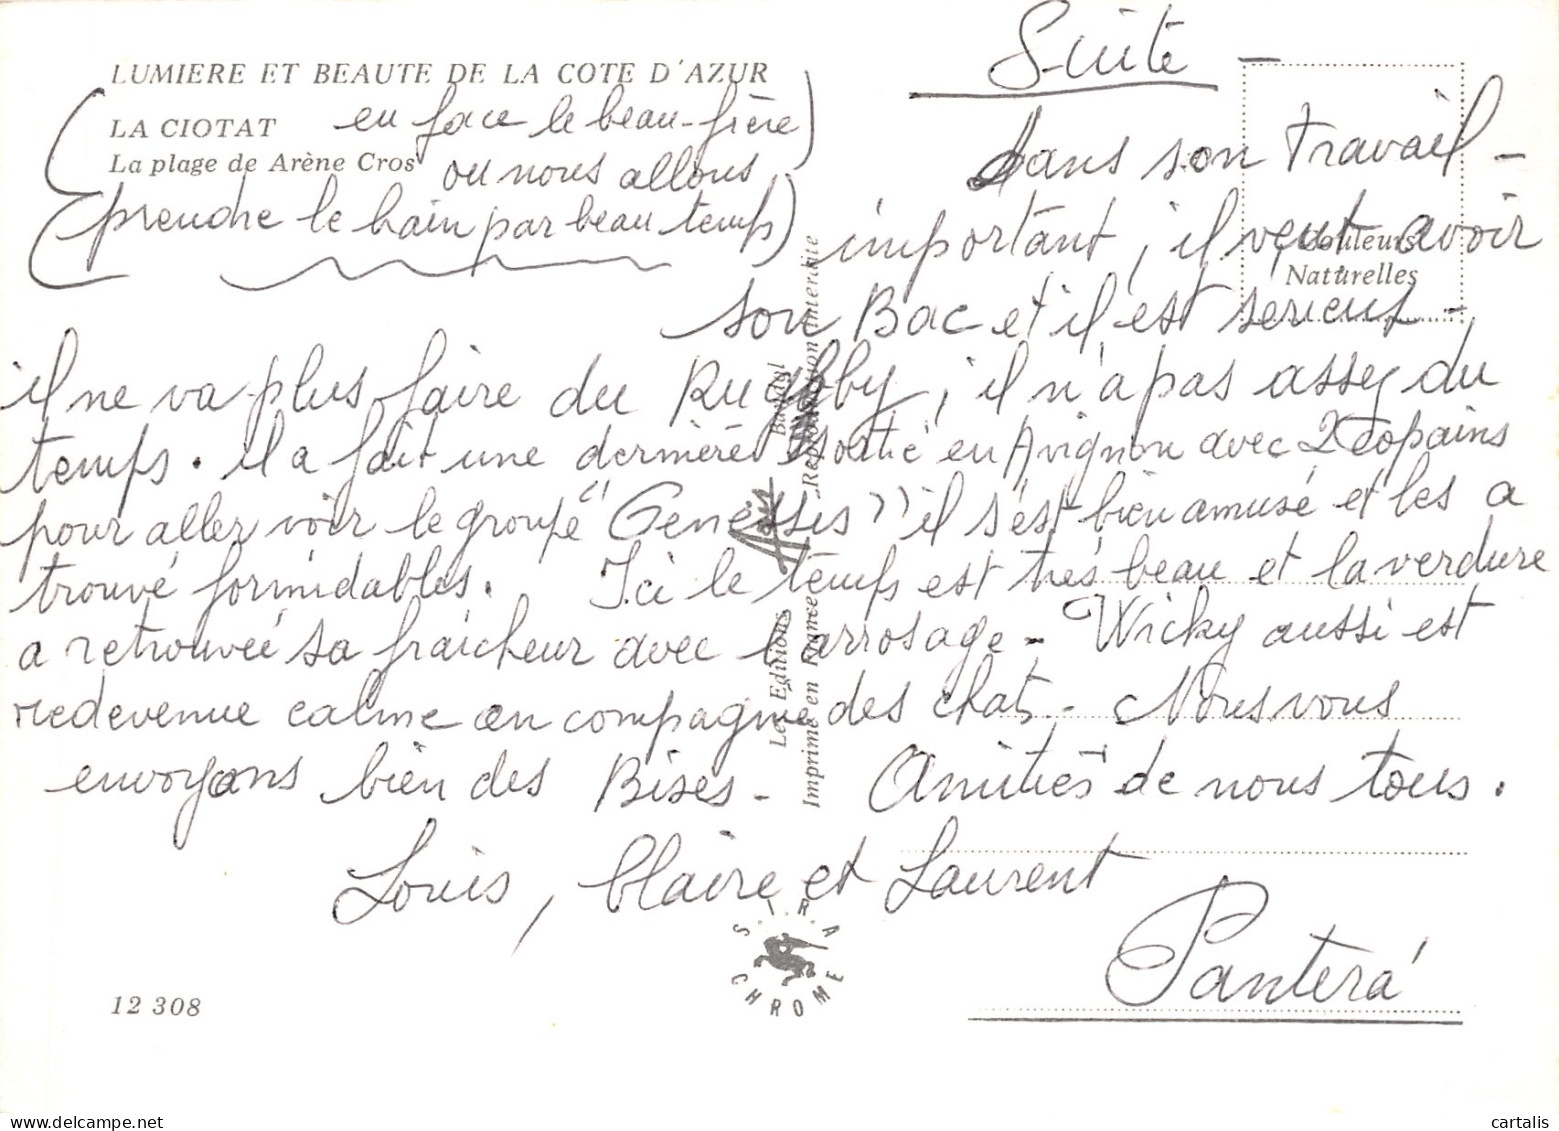 Suite -
LUMIERE ET BEAUTE DE LA COTE D'AZUR
LA CIOTAT
La plage de Arène Cros
(en face le beau-frère)
ou nous allons
(prendre le bain par beau temps)
Couleurs
Naturelles
dans son travail -
important, il veut avoir
son Bac et il est serieux -
il ne va plus faire du Rugbby, il n'a pas assez du
temps. il a fait une dernière sortie en Avignon avec 2 copains
pour aller voir le groupe "Genessis" il s'est bien amusé et les a
trouvé formidables. Ici le temps est très beau et la verdure
a retrouvée sa fraicheur avec l'arrosage - Wicky aussi est
redevenue calme en compagnie des chats - Nous vous
envoyons bien des Bises - Amitiés de nous tous.
Louis, Claire et Laurent
Pantera
Les Editions Aris Bandol
Imprimé en France Reproduction interdite
S.I.R.A
CHROME
12 308
www.delcampe.net
cartalis